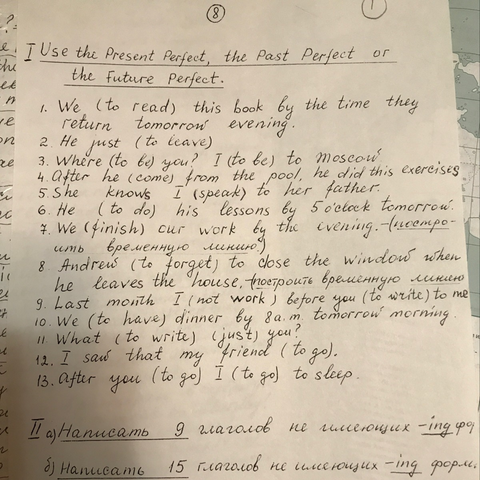 8
1
I Use the Present Perfect, the Past Perfect or
the Future Perfect.
1. We (to read) this book by the time they
return tomorrow evening.
2. He just (to leave)
3. Where (to be) you? I (to be) to Moscow
4. After he (come) from the pool, he did this exercises
5. She knows I (speak) to her father.
6. He (to do) his lessons by 5 o'clock tomorrow.
7. We (finish) our work by the evening. (постро-
ить временную линию)
8 Andrew (to forget) to close the window when
he leaves the house, построить временную линию
9. Last month I (not work) before you (to write) to me
10. We (to have) dinner by 8 a.m. tomorrow morning.
11. What (to write) (just) you?
12. I saw that my friend (to go).
13. After you (to go) I (to go) to sleep.
II а) Написать 9 глаголов не имеющих -ing
б) Написать 15 глаголов не имеющих -ing форм